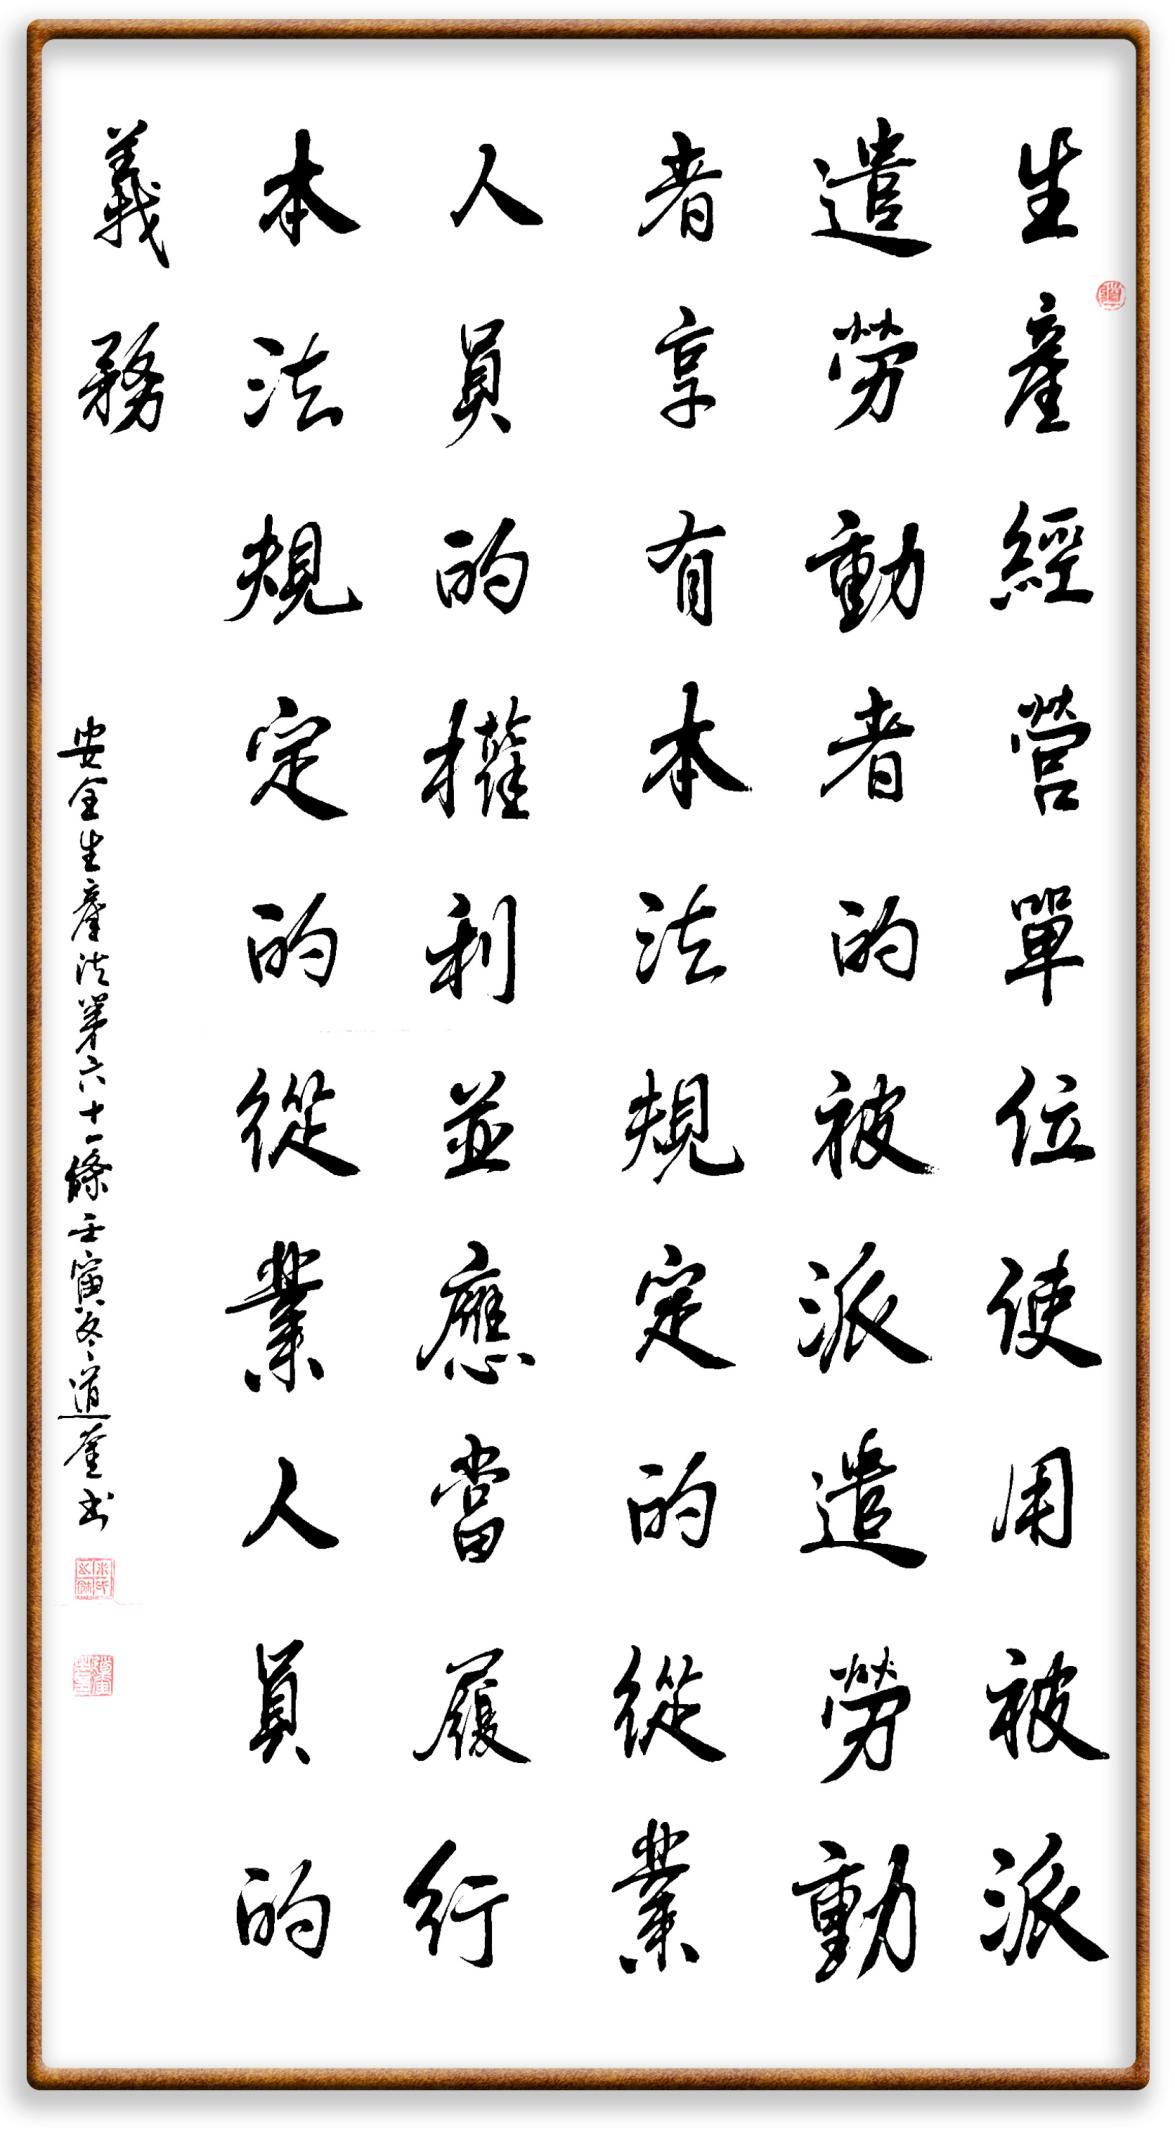 生產經營單位使用被派
遣勞動者的被派遣勞動
者享有本法規定的從業
人員的權利並應當履行
本法規定的從業人員的
義務
安全生產法第六十一條壬寅冬道奎书